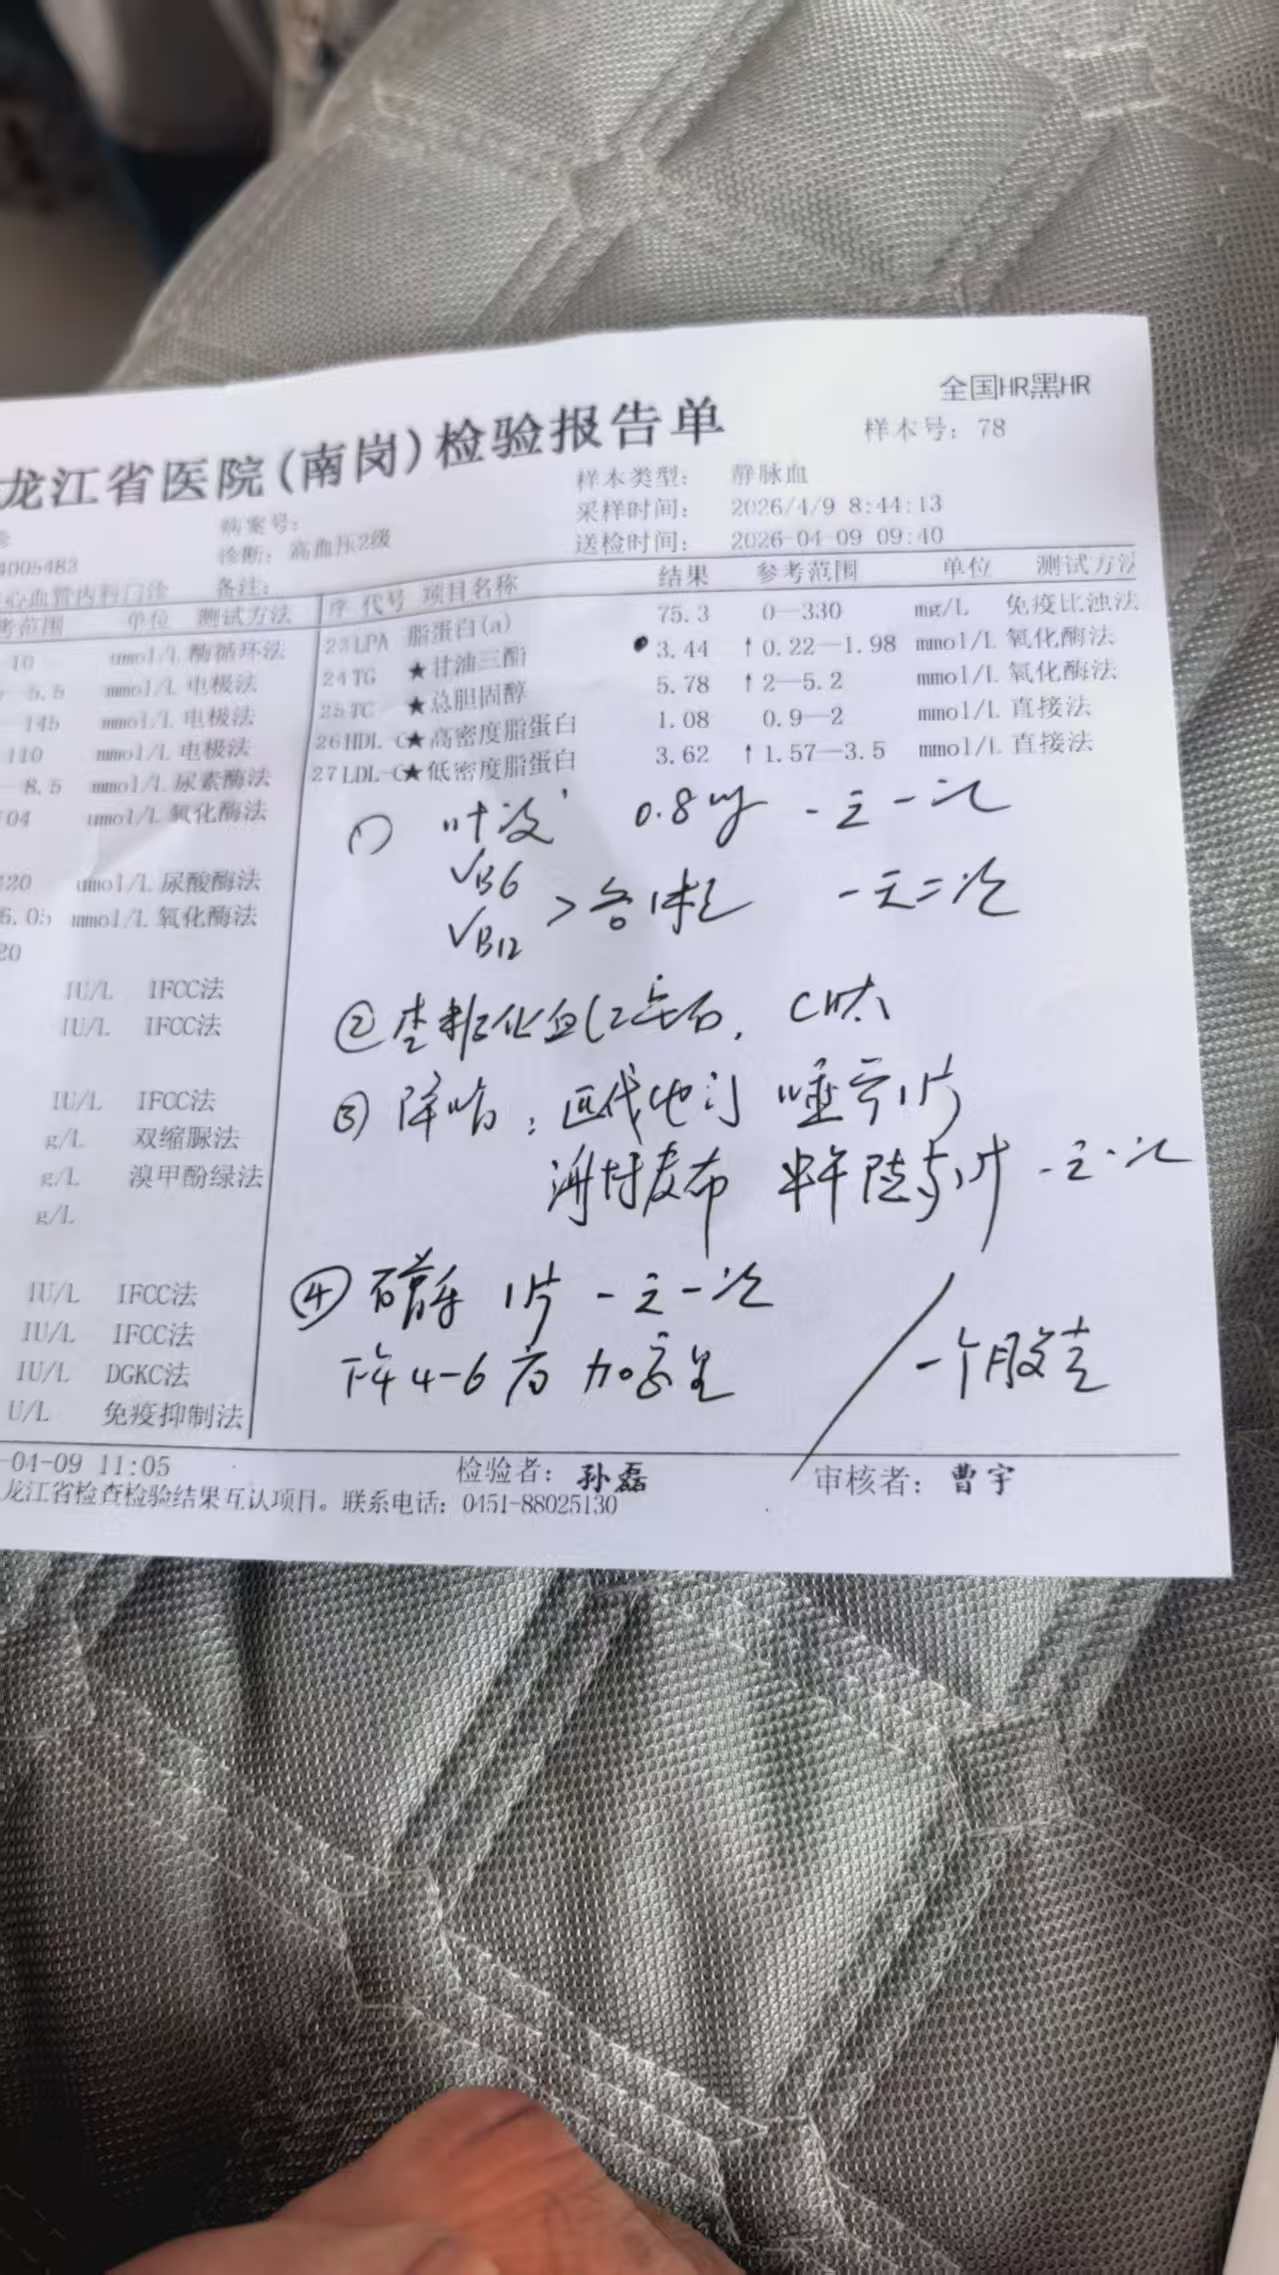 全国HR黑HR
龙江省医院(南岗)检验报告单
样本号: 78
样本类型: 静脉血
病案号:
采样时间: 2026/4/9 8:44:13
4005483
诊断: 高血压2级
送检时间: 2026-04-09 09:40
心血管内科门诊 备注:
考范围 单位 测试方法 序 代号 项目名称 结果 参考范围 单位 测试方法
10 umol/L 酶循环法 23 LPA 脂蛋白(a) 75.3 0—330 mg/L 免疫比浊法
5.5 mmol/L 电极法 24 TG ★甘油三酯 3.44 ↑0.22—1.98 mmol/L 氧化酶法
145 mmol/L 电极法 25 TC ★总胆固醇 5.78 ↑2—5.2 mmol/L 氧化酶法
110 mmol/L 电极法 26 HDL-C★高密度脂蛋白 1.08 0.9—2 mmol/L 直接法
8.5 mmol/L 尿素酶法 27 LDL-C★低密度脂蛋白 3.62 ↑1.57—3.5 mmol/L 直接法
04 umol/L 氧化酶法
420 umol/L 尿酸酶法
6.05 mmol/L 氧化酶法
20
IU/L IFCC法
IU/L IFCC法
IU/L IFCC法
g/L 双缩脲法
g/L 溴甲酚绿法
g/L
IU/L IFCC法
IU/L IFCC法
IU/L DGKC法
U/L 免疫抑制法
① 叶酸 0.8mg 一天一次
VB6
VB12 > 各1粒 一天二次
② 查糖化血红蛋白,
③ 降脂: 匹伐他汀 睡前1片
海博麦布 1片 一天一次
④ 1片 一天一次
下午4-6点
一个月
-04-09 11:05 检验者: 孙磊 审核者: 曹宇
龙江省检查检验结果互认项目。联系电话: 0451-88025130